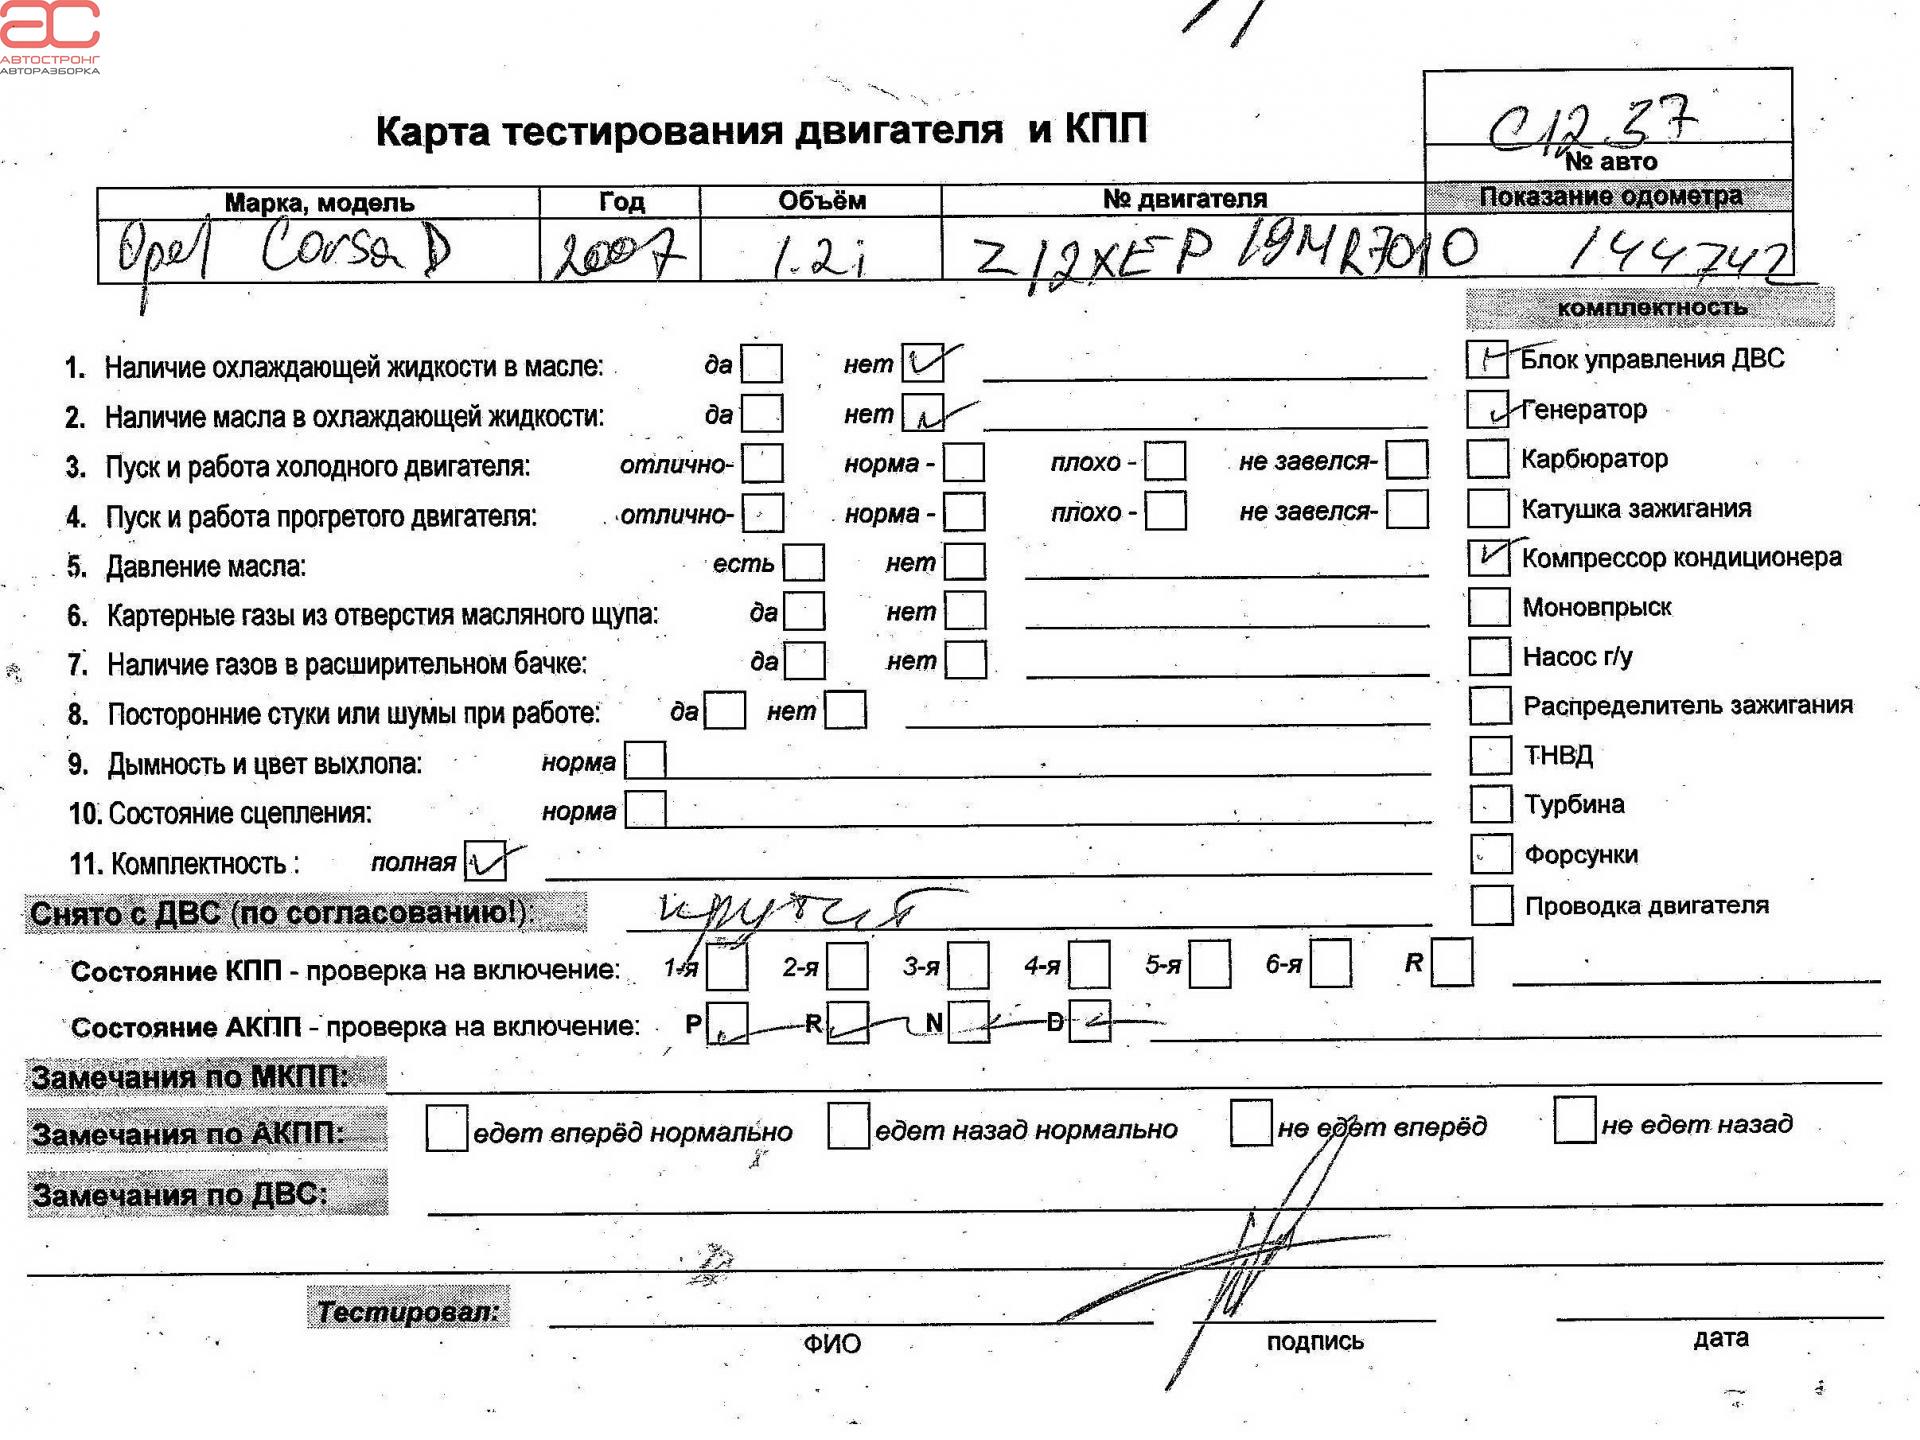 АВТОСТРОНГ
АВТОРАЗБОРКА
Карта тестирования двигателя и КПП
C1237
№ авто
Марка, модель Год Объём № двигателя Показание одометра
Opel Corsa D 2007 1.2i Z12XEP 19MR7010 144742
комплектность
1. Наличие охлаждающей жидкости в масле: да нет Блок управления ДВС
2. Наличие масла в охлаждающей жидкости: да нет Генератор
3. Пуск и работа холодного двигателя: отлично- норма - плохо - не завелся- Карбюратор
4. Пуск и работа прогретого двигателя: отлично- норма - плохо - не завелся- Катушка зажигания
5. Давление масла: есть нет Компрессор кондиционера
6. Картерные газы из отверстия масляного щупа: да нет Моновпрыск
7. Наличие газов в расширительном бачке: да нет Насос г/у
8. Посторонние стуки или шумы при работе: да нет Распределитель зажигания
9. Дымность и цвет выхлопа: норма ТНВД
10. Состояние сцепления: норма Турбина
11. Комплектность : полная Форсунки
Снято с ДВС (по согласованию!): крутит Проводка двигателя
Состояние КПП - проверка на включение: 1-я 2-я 3-я 4-я 5-я 6-я R
Состояние АКПП - проверка на включение: P R N D
Замечания по МКПП:
Замечания по АКПП: едет вперёд нормально едет назад нормально не едет вперёд не едет назад
Замечания по ДВС:
Тестировал:
ФИО подпись дата